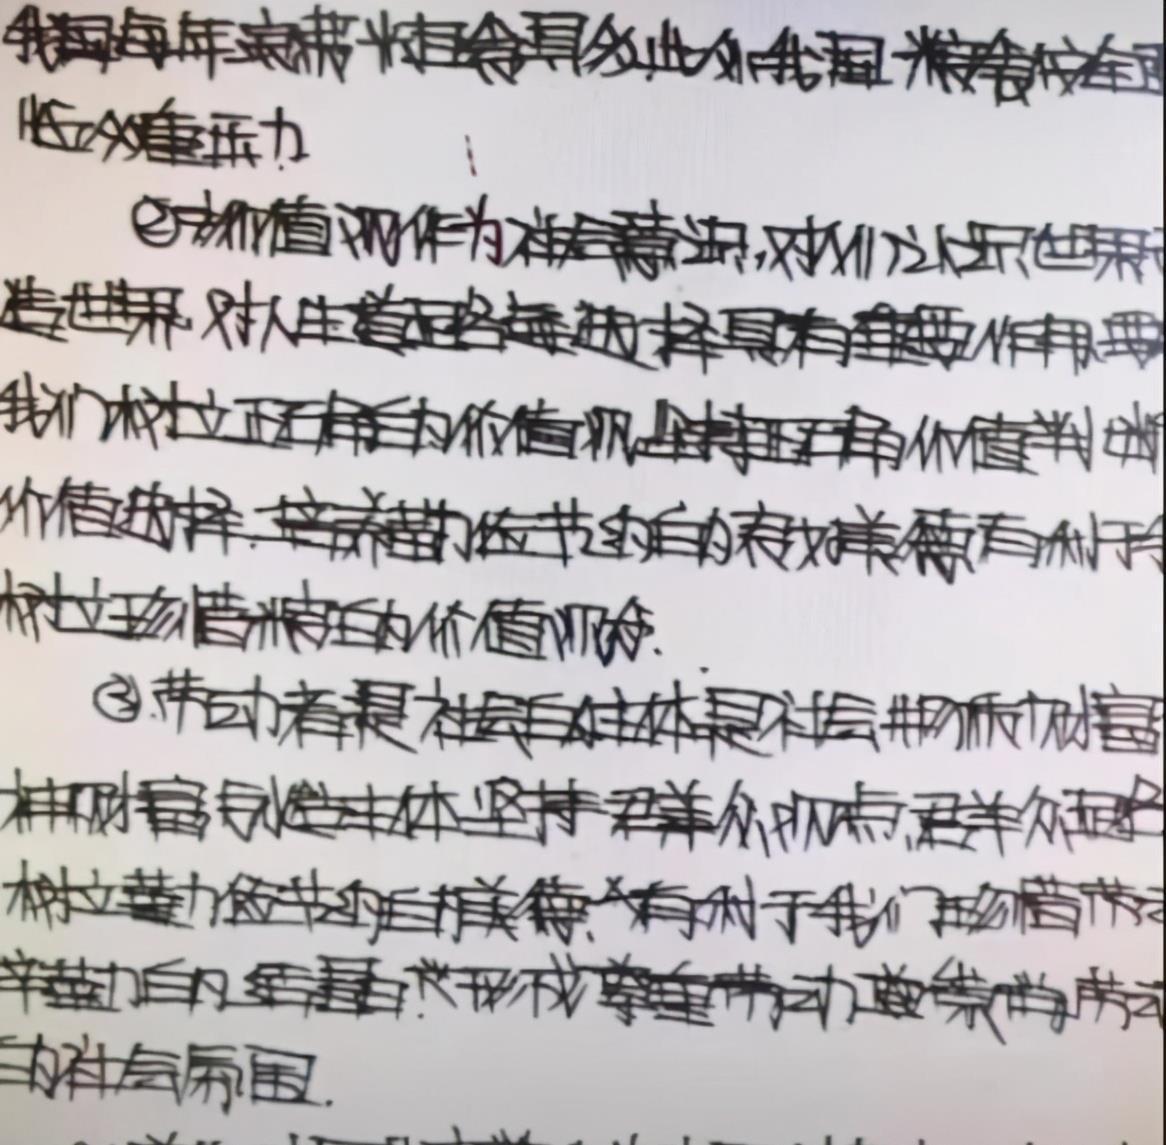 我国每年浪费粮食具多此外我国粮食安全面
临双重压力
②价值观作为社会意识,对人们认识世界
造世界对人生道路的选择具有重要作用要
我们树立正确的价值观坚持正确价值判断
价值选择.培养勤俭节约的传统美德有利于
树立珍惜粮食的价值观念.
③.劳动者是社会的主体是社会物质财富
神财富的创造主体坚持群众观点,群众路
树立勤俭节约的美德.有利于我们珍惜劳动
辛勤的结晶.形成尊重劳动尊崇劳动
的社会氛围.